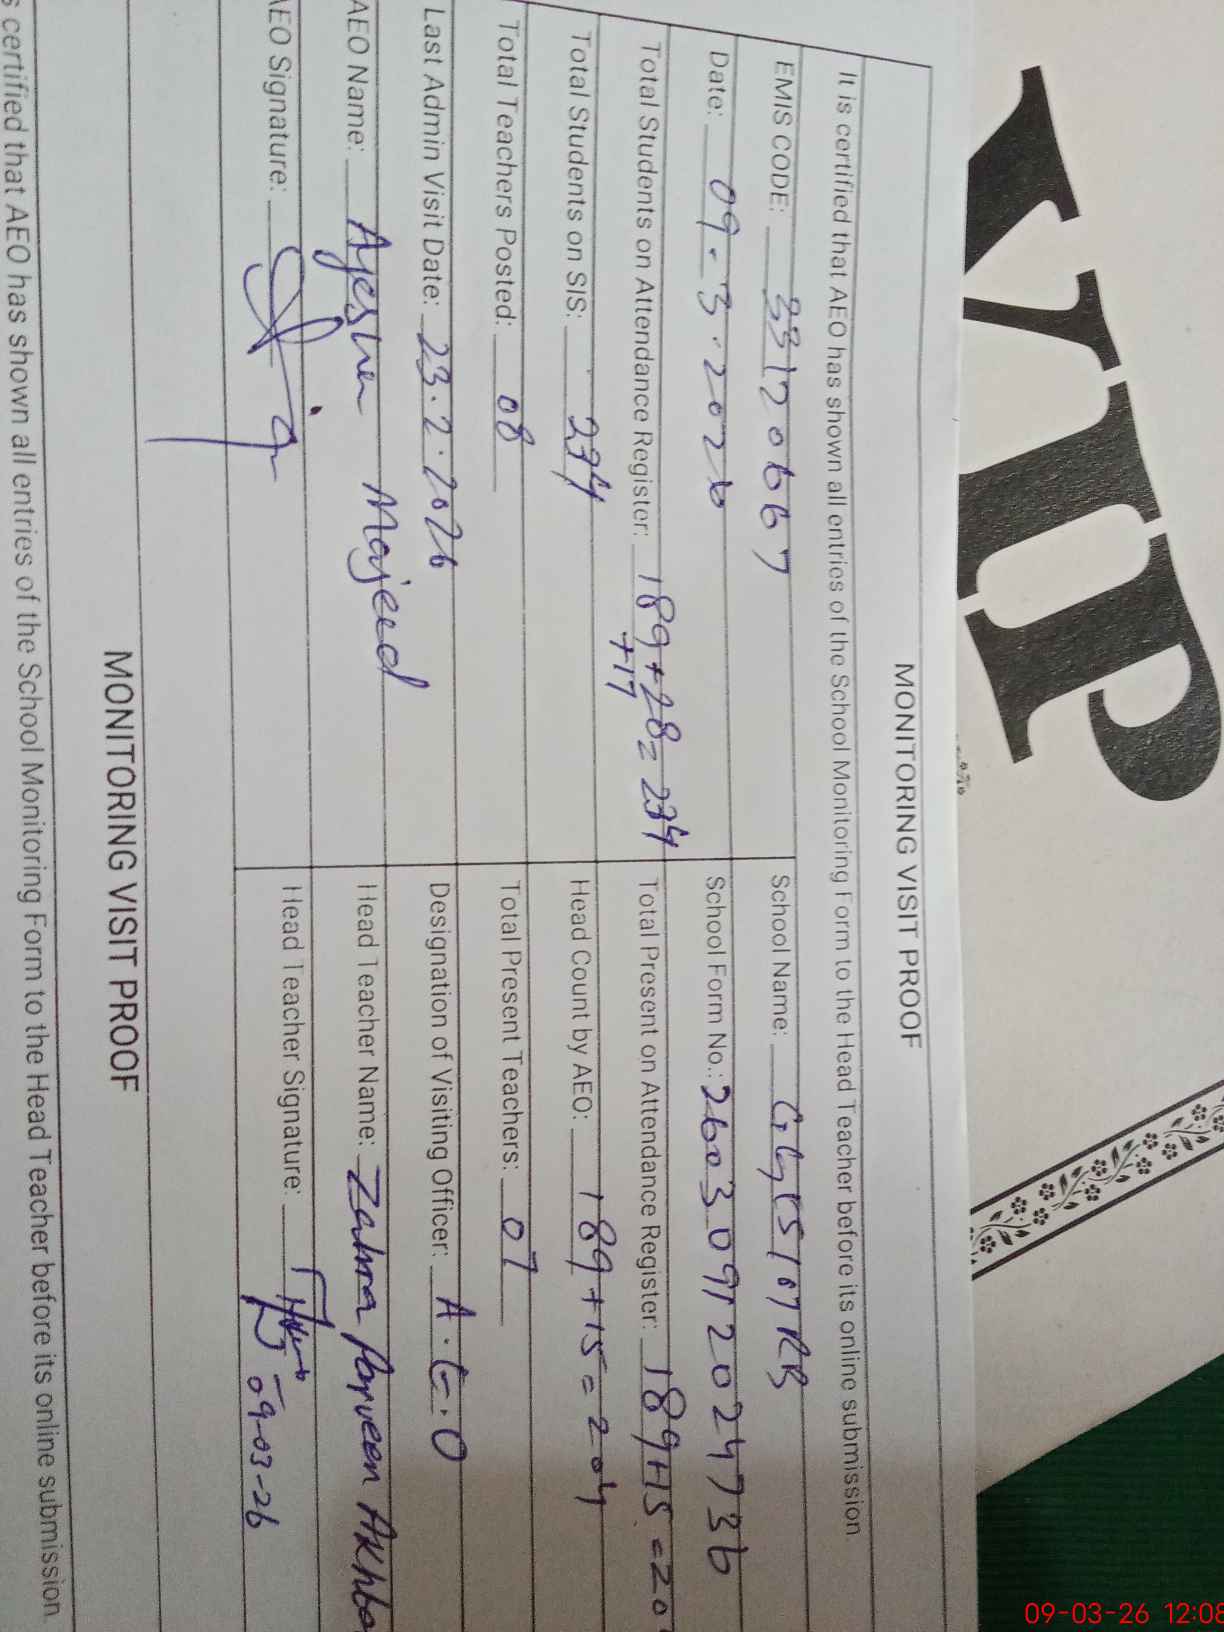 VIP
MONITORING VISIT PROOF
It is certified that AEO has shown all entries of the School Monitoring Form to the Head Teacher before its online submission.
EMIS CODE: 33120667
School Name: 107 RB
Date: 09.3.2026
School Form No.: 26030912024736
Total Students on Attendance Register: 189+28=234
+17
Total Present on Attendance Register: 189+15=20
Total Students on SIS: 234
Head Count by AEO: 189+15=204
Total Teachers Posted: 08
Total Present Teachers: 07
Last Admin Visit Date: 23.2.2026
Designation of Visiting Officer: A.E.O
AEO Name: Ayesha Majeed
Head Teacher Name: Zahra Parveen Akhta
AEO Signature:
Head Teacher Signature:
09-03-26
MONITORING VISIT PROOF
s certified that AEO has shown all entries of the School Monitoring Form to the Head Teacher before its online submission.
09-03-26 12:08